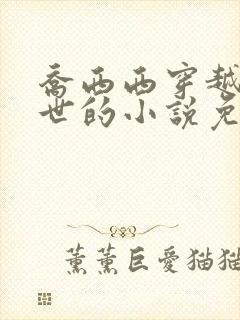 喬西西穿越
世的小說免
薰薰巨愛猫猫